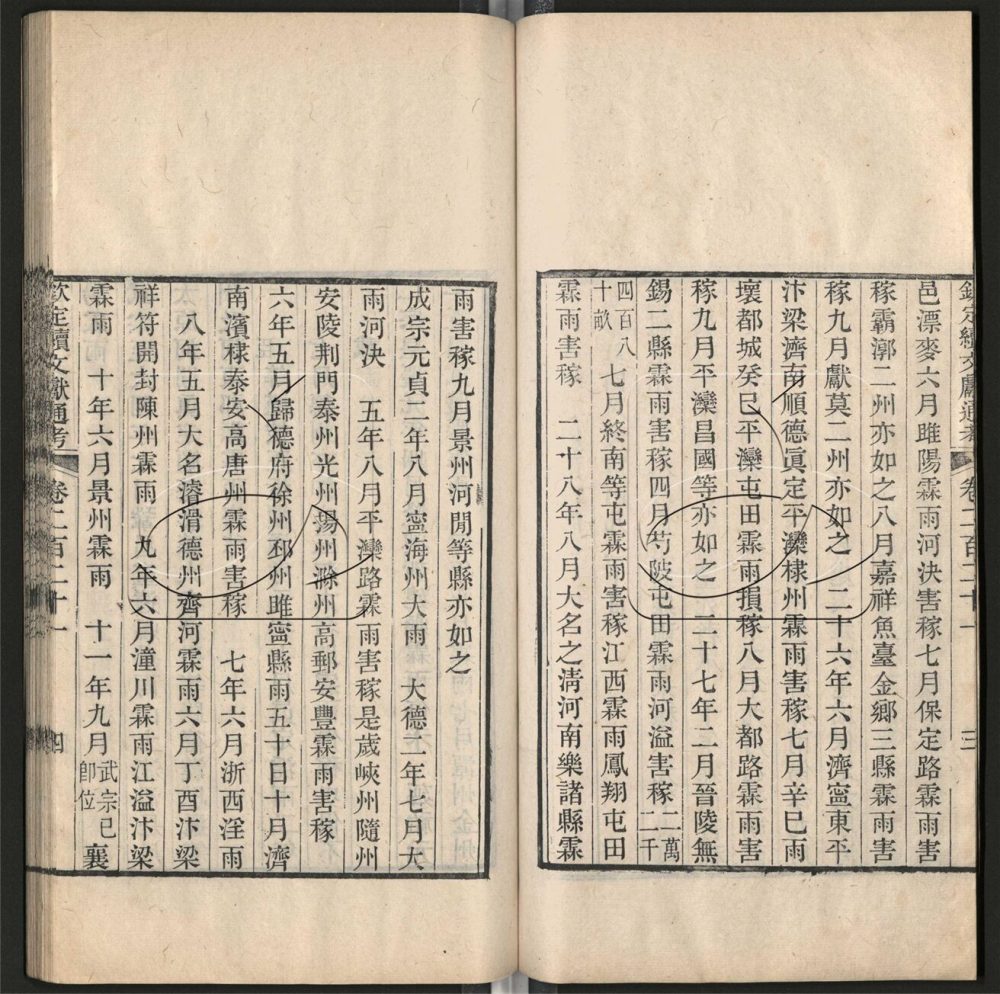 欽定續文獻通考 卷二百二十一 三
邑漂麥六月雎陽霖雨河決害稼七月保定路霖雨害
稼霸漷二州亦如之八月嘉祥魚臺金鄉三縣霖雨害
稼九月獻莫二州亦如之 二十六年六月濟寧東平
汴梁濟南順德眞定平灤棣州霖雨害稼七月辛巳雨
壞都城癸巳平灤屯田霖雨損稼八月大都路霖雨害
稼九月平灤昌國等亦如之 二十七年二月晉陵無
錫二縣霖雨害稼四月芍陂屯田霖雨河溢害稼二萬二千
四百八十畝七月終南等屯霖雨害稼江西霖雨鳳翔屯田
霖雨害稼 二十八年八月大名之淸河南樂諸縣霖
雨害稼九月景州河閒等縣亦如之
成宗元貞二年八月寧海州大雨 大德二年七月大
雨河決 五年八月平灤路霖雨害稼是歲峽州隨州
安陵荆門泰州光州揚州滁州高郵安豐霖雨害稼
六年五月歸德府徐州邳州雎寧縣雨五十日十月濟
南濱棣泰安高唐州霖雨害稼 七年六月浙西淫雨
八年五月大名濬滑德州齊河霖雨六月丁酉汴梁
祥符開封陳州霖雨 九年六月潼川霖雨江溢汴梁
霖雨 十年六月景州霖雨 十一年九月武宗已卽位襄
欽定續文獻通考 卷二百二十一 四